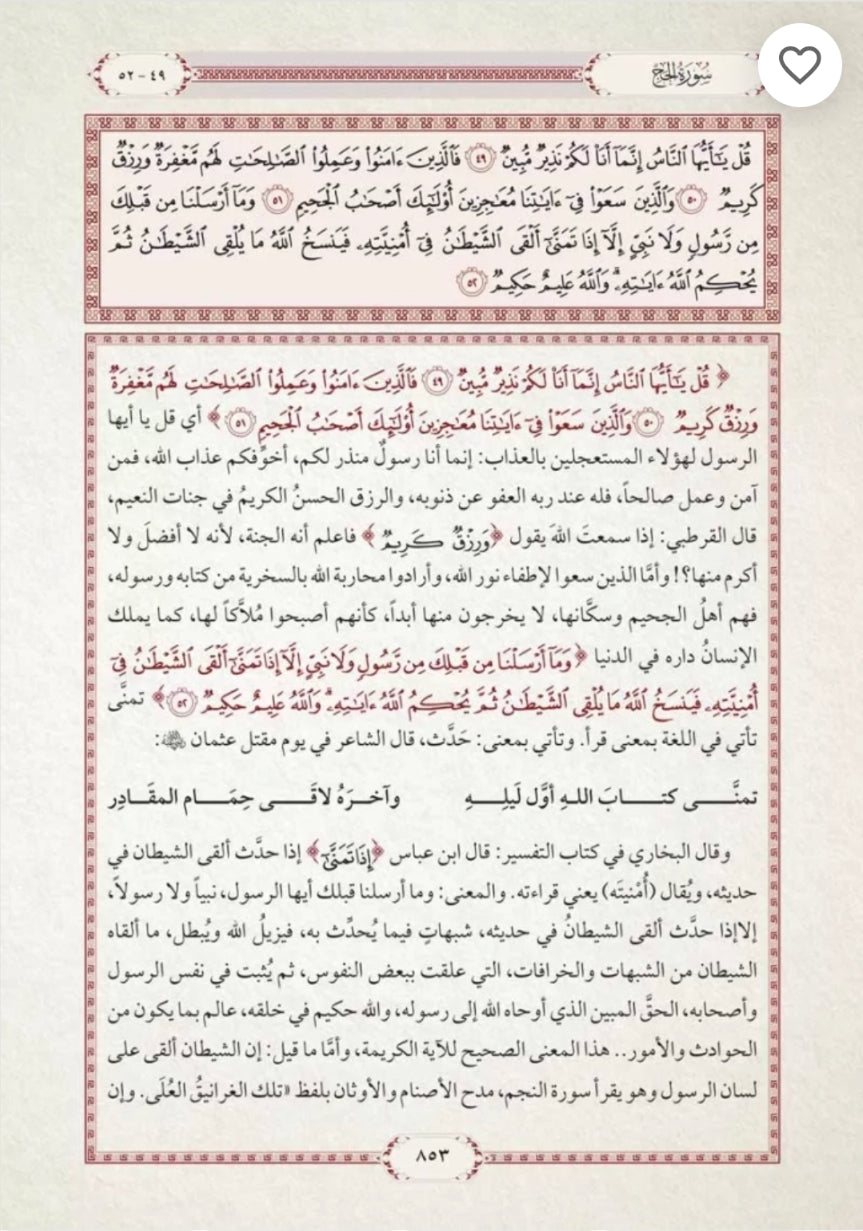 سُورَةُ الحَجِّ
٤٩ - ٥٢
قُلْ يَٰٓأَيُّهَا ٱلنَّاسُ إِنَّمَآ أَنَا۠ لَكُمْ نَذِيرٌ مُّبِينٌ ٤٩ فَٱلَّذِينَ ءَامَنُوا۟ وَعَمِلُوا۟ ٱلصَّٰلِحَٰتِ لَهُم مَّغْفِرَةٌ وَرِزْقٌ
كَرِيمٌ ٥٠ وَٱلَّذِينَ سَعَوْا۟ فِىٓ ءَايَٰتِنَا مُعَٰجِزِينَ أُو۟لَٰٓئِكَ أَصْحَٰبُ ٱلْجَحِيمِ ٥١ وَمَآ أَرْسَلْنَا مِن قَبْلِكَ
مِن رَّسُولٍ وَلَا نَبِىٍّ إِلَّآ إِذَا تَمَنَّىٰٓ أَلْقَى ٱلشَّيْطَٰنُ فِىٓ أُمْنِيَّتِهِۦ فَيَنسَخُ ٱللَّهُ مَا يُلْقِى ٱلشَّيْطَٰنُ ثُمَّ
يُحْكِمُ ٱللَّهُ ءَايَٰتِهِۦ ۗ وَٱللَّهُ عَلِيمٌ حَكِيمٌ ٥٢
﴿ قُلْ يَٰٓأَيُّهَا ٱلنَّاسُ إِنَّمَآ أَنَا۠ لَكُمْ نَذِيرٌ مُّبِينٌ ٤٩ فَٱلَّذِينَ ءَامَنُوا۟ وَعَمِلُوا۟ ٱلصَّٰلِحَٰتِ لَهُم مَّغْفِرَةٌ
وَرِزْقٌ كَرِيمٌ ٥٠ وَٱلَّذِينَ سَعَوْا۟ فِىٓ ءَايَٰتِنَا مُعَٰجِزِينَ أُو۟لَٰٓئِكَ أَصْحَٰبُ ٱلْجَحِيمِ ٥١ ﴾ أي قل يا أيها
الرسول لهؤلاء المستعجلين بالعذاب: إنما أنا رسولٌ منذر لكم، أخوِّفكم عذاب الله، فمن
آمن وعمل صالحاً، فله عند ربه العفو عن ذنوبه، والرزق الحسنُ الكريمُ في جنات النعيم،
قال القرطبي: إذا سمعتَ اللهَ يقول ﴿وَرِزْقٌ كَرِيمٌ ﴾ فاعلم أنه الجنة، لأنه لا أفضلَ ولا
أكرم منها؟! وأمَّا الذين سعوا لإطفاء نور الله، وأرادوا محاربة الله بالسخرية من كتابه ورسوله،
فهم أهلُ الجحيم وسكَّانها، لا يخرجون منها أبداً، كأنهم أصبحوا مُلاَّكاً لها، كما يملك
الإنسانُ داره في الدنيا ﴿وَمَآ أَرْسَلْنَا مِن قَبْلِكَ مِن رَّسُولٍ وَلَا نَبِىٍّ إِلَّآ إِذَا تَمَنَّىٰٓ أَلْقَى ٱلشَّيْطَٰنُ فِىٓ
أُمْنِيَّتِهِۦ فَيَنسَخُ ٱللَّهُ مَا يُلْقِى ٱلشَّيْطَٰنُ ثُمَّ يُحْكِمُ ٱللَّهُ ءَايَٰتِهِۦ ۗ وَٱللَّهُ عَلِيمٌ حَكِيمٌ ٥٢﴾ تمنَّى
تأتي في اللغة بمعنى قرأ. وتأتي بمعنى: حَدَّث، قال الشاعر في يوم مقتل عثمان رضي الله عنه:
تمنَّـــى كتــــابَ اللهِ أوَّل لَيلِـــهِ وآخـرَهُ لاقَـــى حِمَـــام المقَـادِر
وقال البخاري في كتاب التفسير: قال ابن عباس ﴿إِذَا تَمَنَّىٰٓ﴾ إذا حدَّث ألقى الشيطان في
حديثه، ويُقال (أُمْنيتَه) يعني قراءته. والمعنى: وما أرسلنا قبلك أيها الرسول، نبياً ولا رسولاً،
إلا إذا حدَّث ألقى الشيطانُ في حديثه، شبهاتٍ فيما يُحدِّث به، فيزيلُ الله ويُبطل، ما ألقاه
الشيطان من الشبهات والخرافات، التي علقت ببعض النفوس، ثم يُثبت في نفس الرسول
وأصحابه، الحقَّ المبين الذي أوحاه الله إلى رسوله، والله حكيم في خلقه، عالم بما يكون من
الحوادث والأمور.. هذا المعنى الصحيح للآية الكريمة، وأمَّا ما قيل: إن الشيطان ألقى على
لسان الرسول وهو يقرأ سورة النجم، مدح الأصنام والأوثان بلفظ «تلك الغرانيقُ العُلَى. وإن
٨٥٣